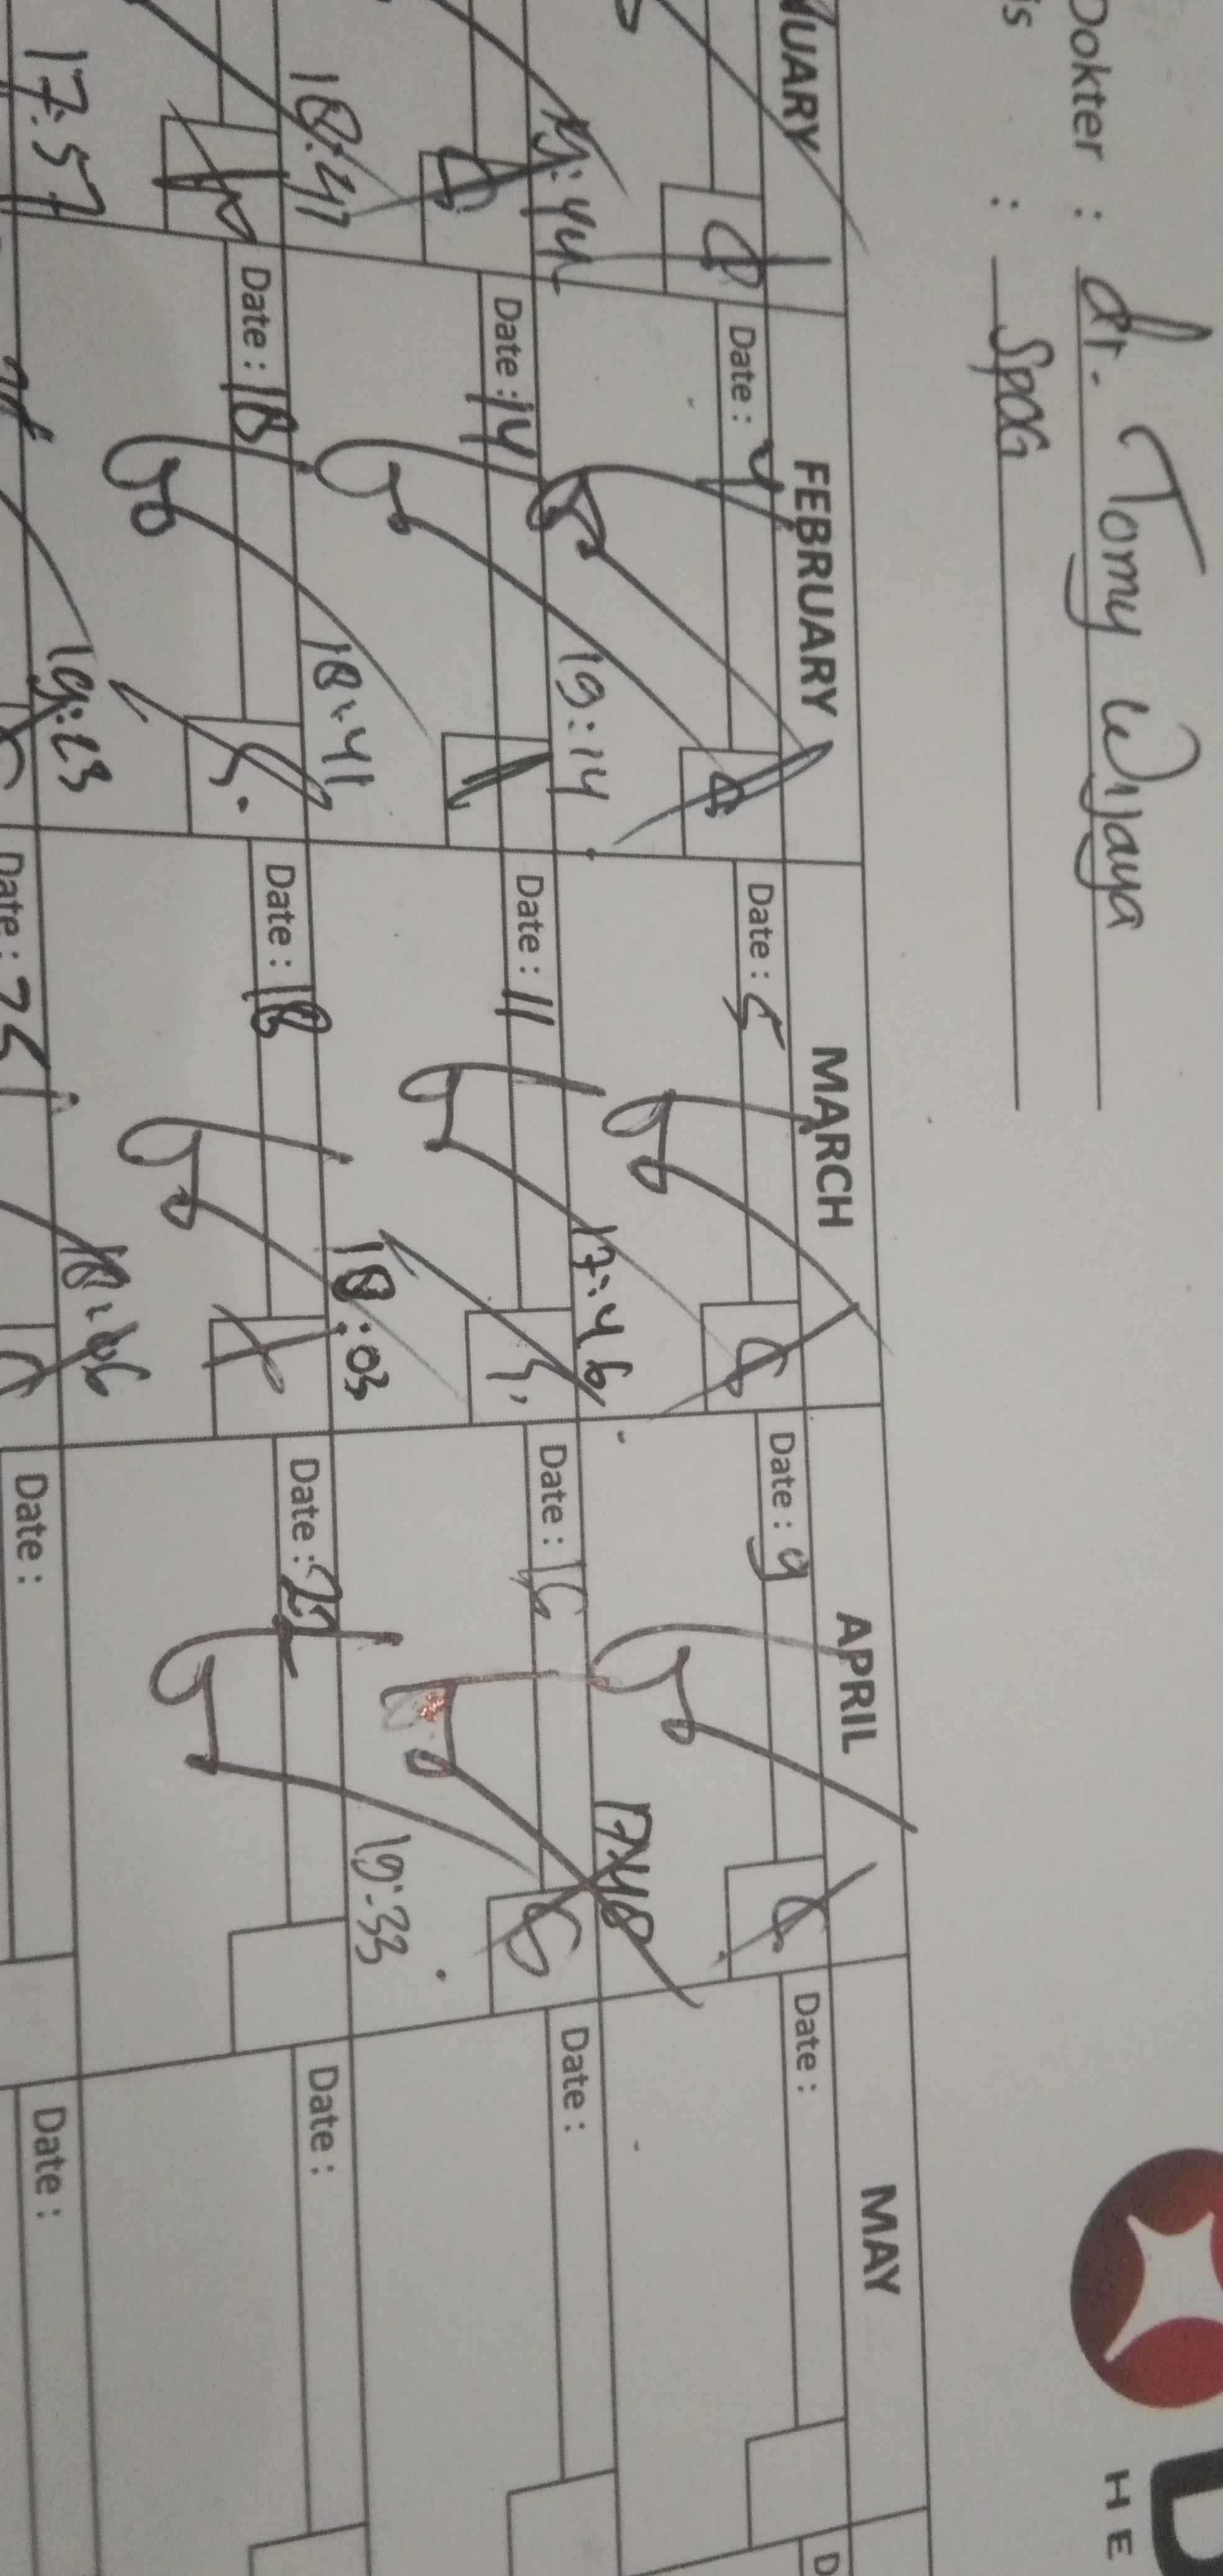 Dokter : dr. Tomy Wijaya
is : SpOG
NUARY FEBRUARY MARCH APRIL MAY
Date : 4 Date : 5 Date : 9 Date : D
19:44 19:14 17:46
Date : 14 Date : 11 Date : 16 Date :
18:41 18:03 19:33
Date : 18 Date : 18 Date : 22 Date :
17.57 19:23
Date : 25 Date : Date :
HE